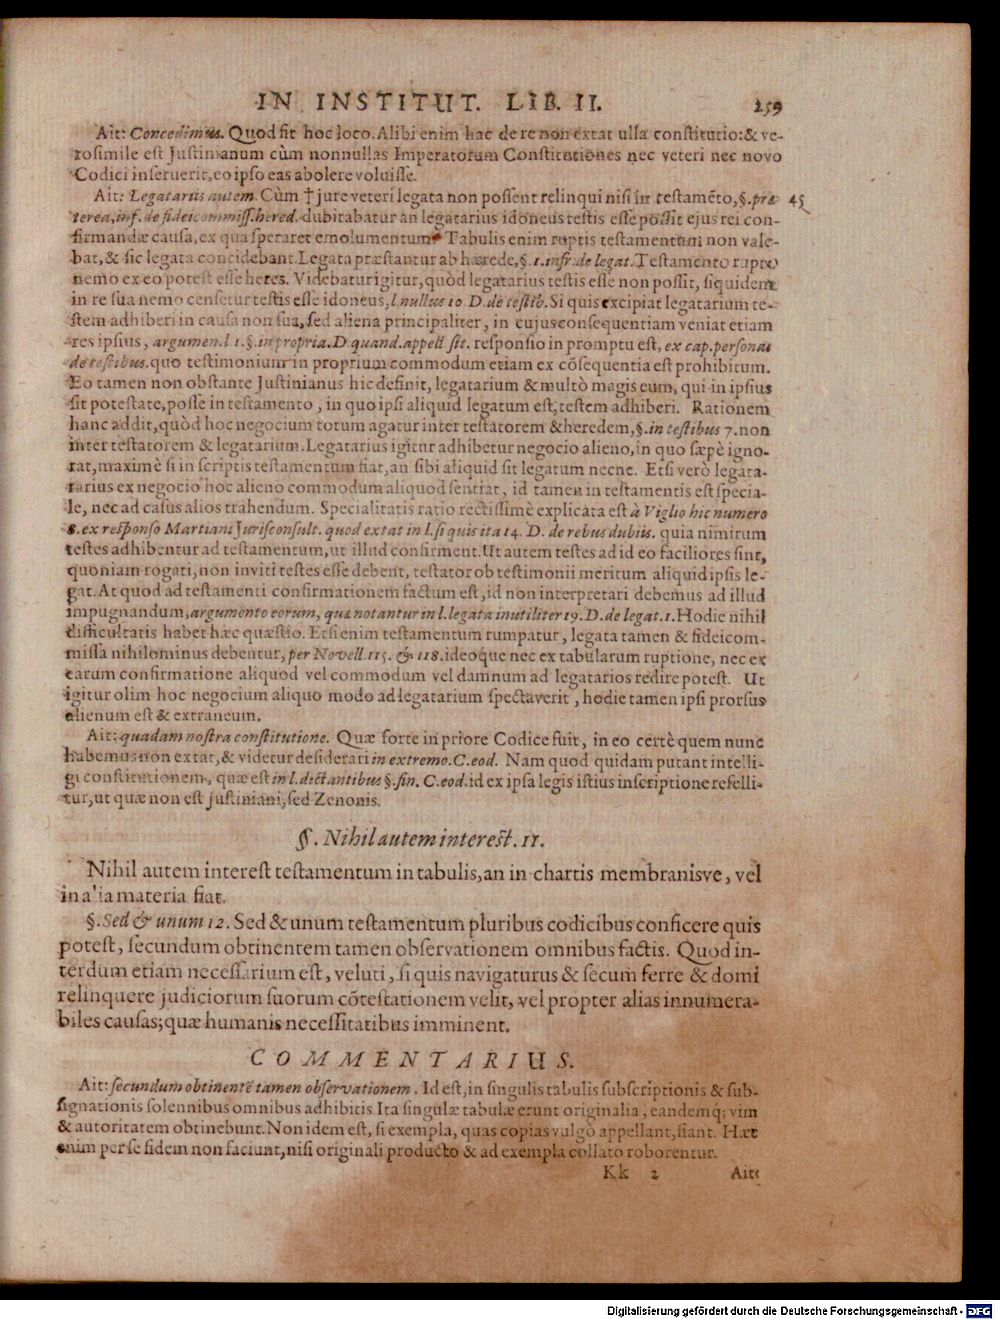 IN INSTITUT. LIB. II. 259
Ait: Concedimus. Quod sit hoc loco. Alibi enim hac de re non extat ulla constitutio: & ve-
rosimile est Justinianum cùm nonnullas Imperatorum Constitutiones nec veteri nec novo
Codici inseruerit, eo ipso eas abolere voluisse.
Ait: Legatariis autem. Cùm † jure veteri legata non possent relinqui nisi in testamẽto, §. præ- 45
terea, inf. de fideicommiss. hered. dubitabatur an legatarius idoneus testis esse possit ejus rei con-
firmandæ causa, ex qua speraret emolumentum. Tabulis enim ruptis testamentum non vale-
bat, & sic legata concidebant. Legata præstantur ab hærede, §. 1. infr. de legat. Testamento rupto
nemo ex eo potest esse heres. Videbatur igitur, quòd legatarius testis esse non possit, siquidem
in re sua nemo censetur testis esse idoneus, l. nullus 10 D. de testib. Si quis excipiat legatarium te-
stem adhiberi in causa non sua, sed aliena principaliter, in cujus consequentiam veniat etiam
res ipsius, argumen. l 1. §. in propria. D. quand. appell sit. responsio in promptu est, ex cap. personas
de testibus. quo testimonium in proprium commodum etiam ex cõsequentia est prohibitum.
Eo tamen non obstante Justinianus hic definit, legatarium & multò magis eum, qui in ipsius
sit potestate, posse in testamento, in quo ipsi aliquid legatum est, testem adhiberi. Rationem
hanc addit, quòd hoc negocium totum agatur inter testatorem & heredem, §. in testibus 7. non
inter testatorem & legatarium. Legatarius igitur adhibetur negocio alieno, in quo sæpè igno-
rat, maximè si in scriptis testamentum fiat, an sibi aliquid sit legatum necne. Etsi verò legata-
rarius ex negocio hoc alieno commodum aliquod sentiat, id tamen in testamentis est specia-
le, nec ad casus alios trahendum. Specialitatis ratio rectissimè explicata est à Viglio hic numero
8. ex responso Martiani Jurisconsult. quod extat in l. si quis ita 14. D. de rebus dubiis. quia nimirum
testes adhibentur ad testamentum, ut illud confirment. Ut autem testes ad id eo faciliores sint,
quoniam rogati, non inviti testes esse debent, testator ob testimonii meritum aliquid ipsis le-
gat. At quod ad testamenti confirmationem factum est, id non interpretari debemus ad illud
impugnandum, argumento eorum, quæ notantur in l. legata inutiliter 19. D. de legat. 1. Hodie nihil
difficultatis habet hæc quæstio. Etsi enim testamentum rumpatur, legata tamen & fideicom-
missa nihilominus debentur, per Novell. 115. & 118. ideoque nec ex tabularum ruptione, nec ex
earum confirmatione aliquod vel commodum vel damnum ad legatarios redire potest. Ut
igitur olim hoc negocium aliquo modo ad legatarium spectaverit, hodie tamen ipsi prorsus
alienum est & extraneum.
Ait: quadam nostra constitutione. Quæ forte in priore Codice fuit, in eo certè quem nunc
habemus non extat, & videtur desiderari in extremo. C. eod. Nam quod quidam putant intelli-
gi constitutionem, quæ est in l. dictantibus §. fin. C. eod. id ex ipsa legis istius inscriptione refelli-
tur, ut quæ non est Justiniani, sed Zenonis.
§. Nihil autem interest. 11.
Nihil autem interest testamentum in tabulis, an in chartis membranisve, vel
in a'ia materia fiat.
§. Sed & unum 12. Sed & unum testamentum pluribus codicibus conficere quis
potest, secundum obtinentem tamen observationem omnibus factis. Quod in-
terdum etiam necessarium est, veluti, si quis navigaturus & secum ferre & domi
relinquere judiciorum suorum cõtestationem velit, vel propter alias innumera-
biles causas; quæ humanis necessitatibus imminent.
COMMENTARIUS.
Ait: secundum obtinentẽ tamen observationem. Id est, in singulis tabulis subscriptionis & sub-
signationis solennibus omnibus adhibitis Ita singulæ tabulæ erunt originalia, eandemq; vim
& autoritatem obtinebunt. Non idem est, si exempla, quas copias vulgò appellant, fiant. Hæc
enim per se fidem non faciunt, nisi originali producto & ad exempla collato roborentur.
Kk 2 Ait:
Digitalisierung gefördert durch die Deutsche Forschungsgemeinschaft - DFG